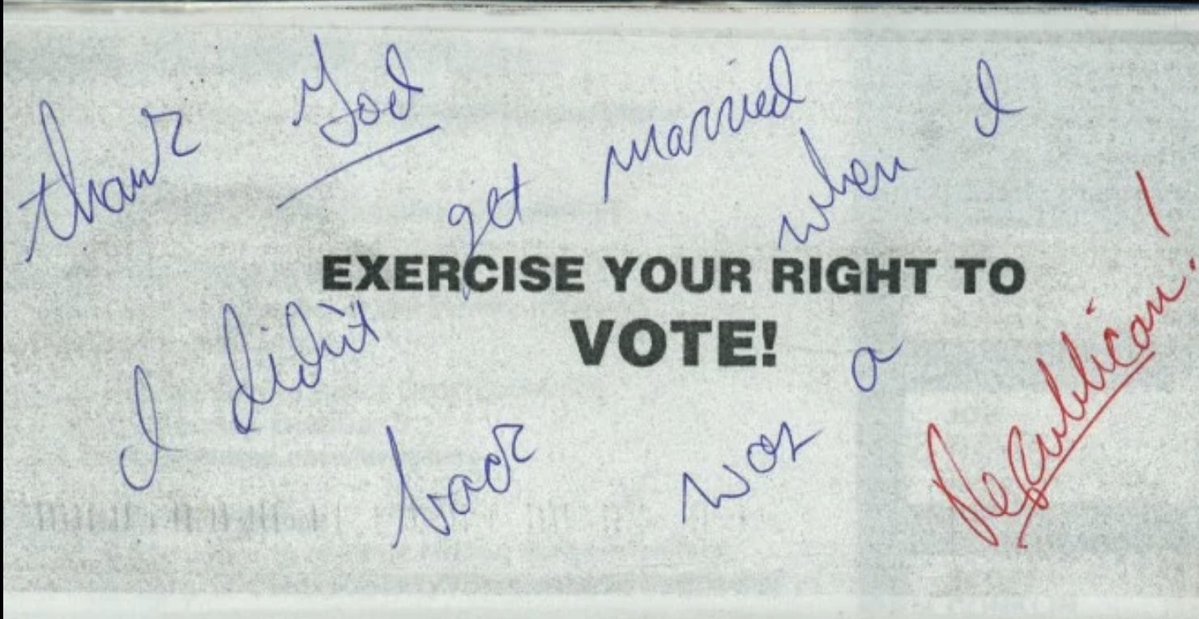 thank God
I didn't get married
back when I
was a Republican!
EXERCISE YOUR RIGHT TO
VOTE!